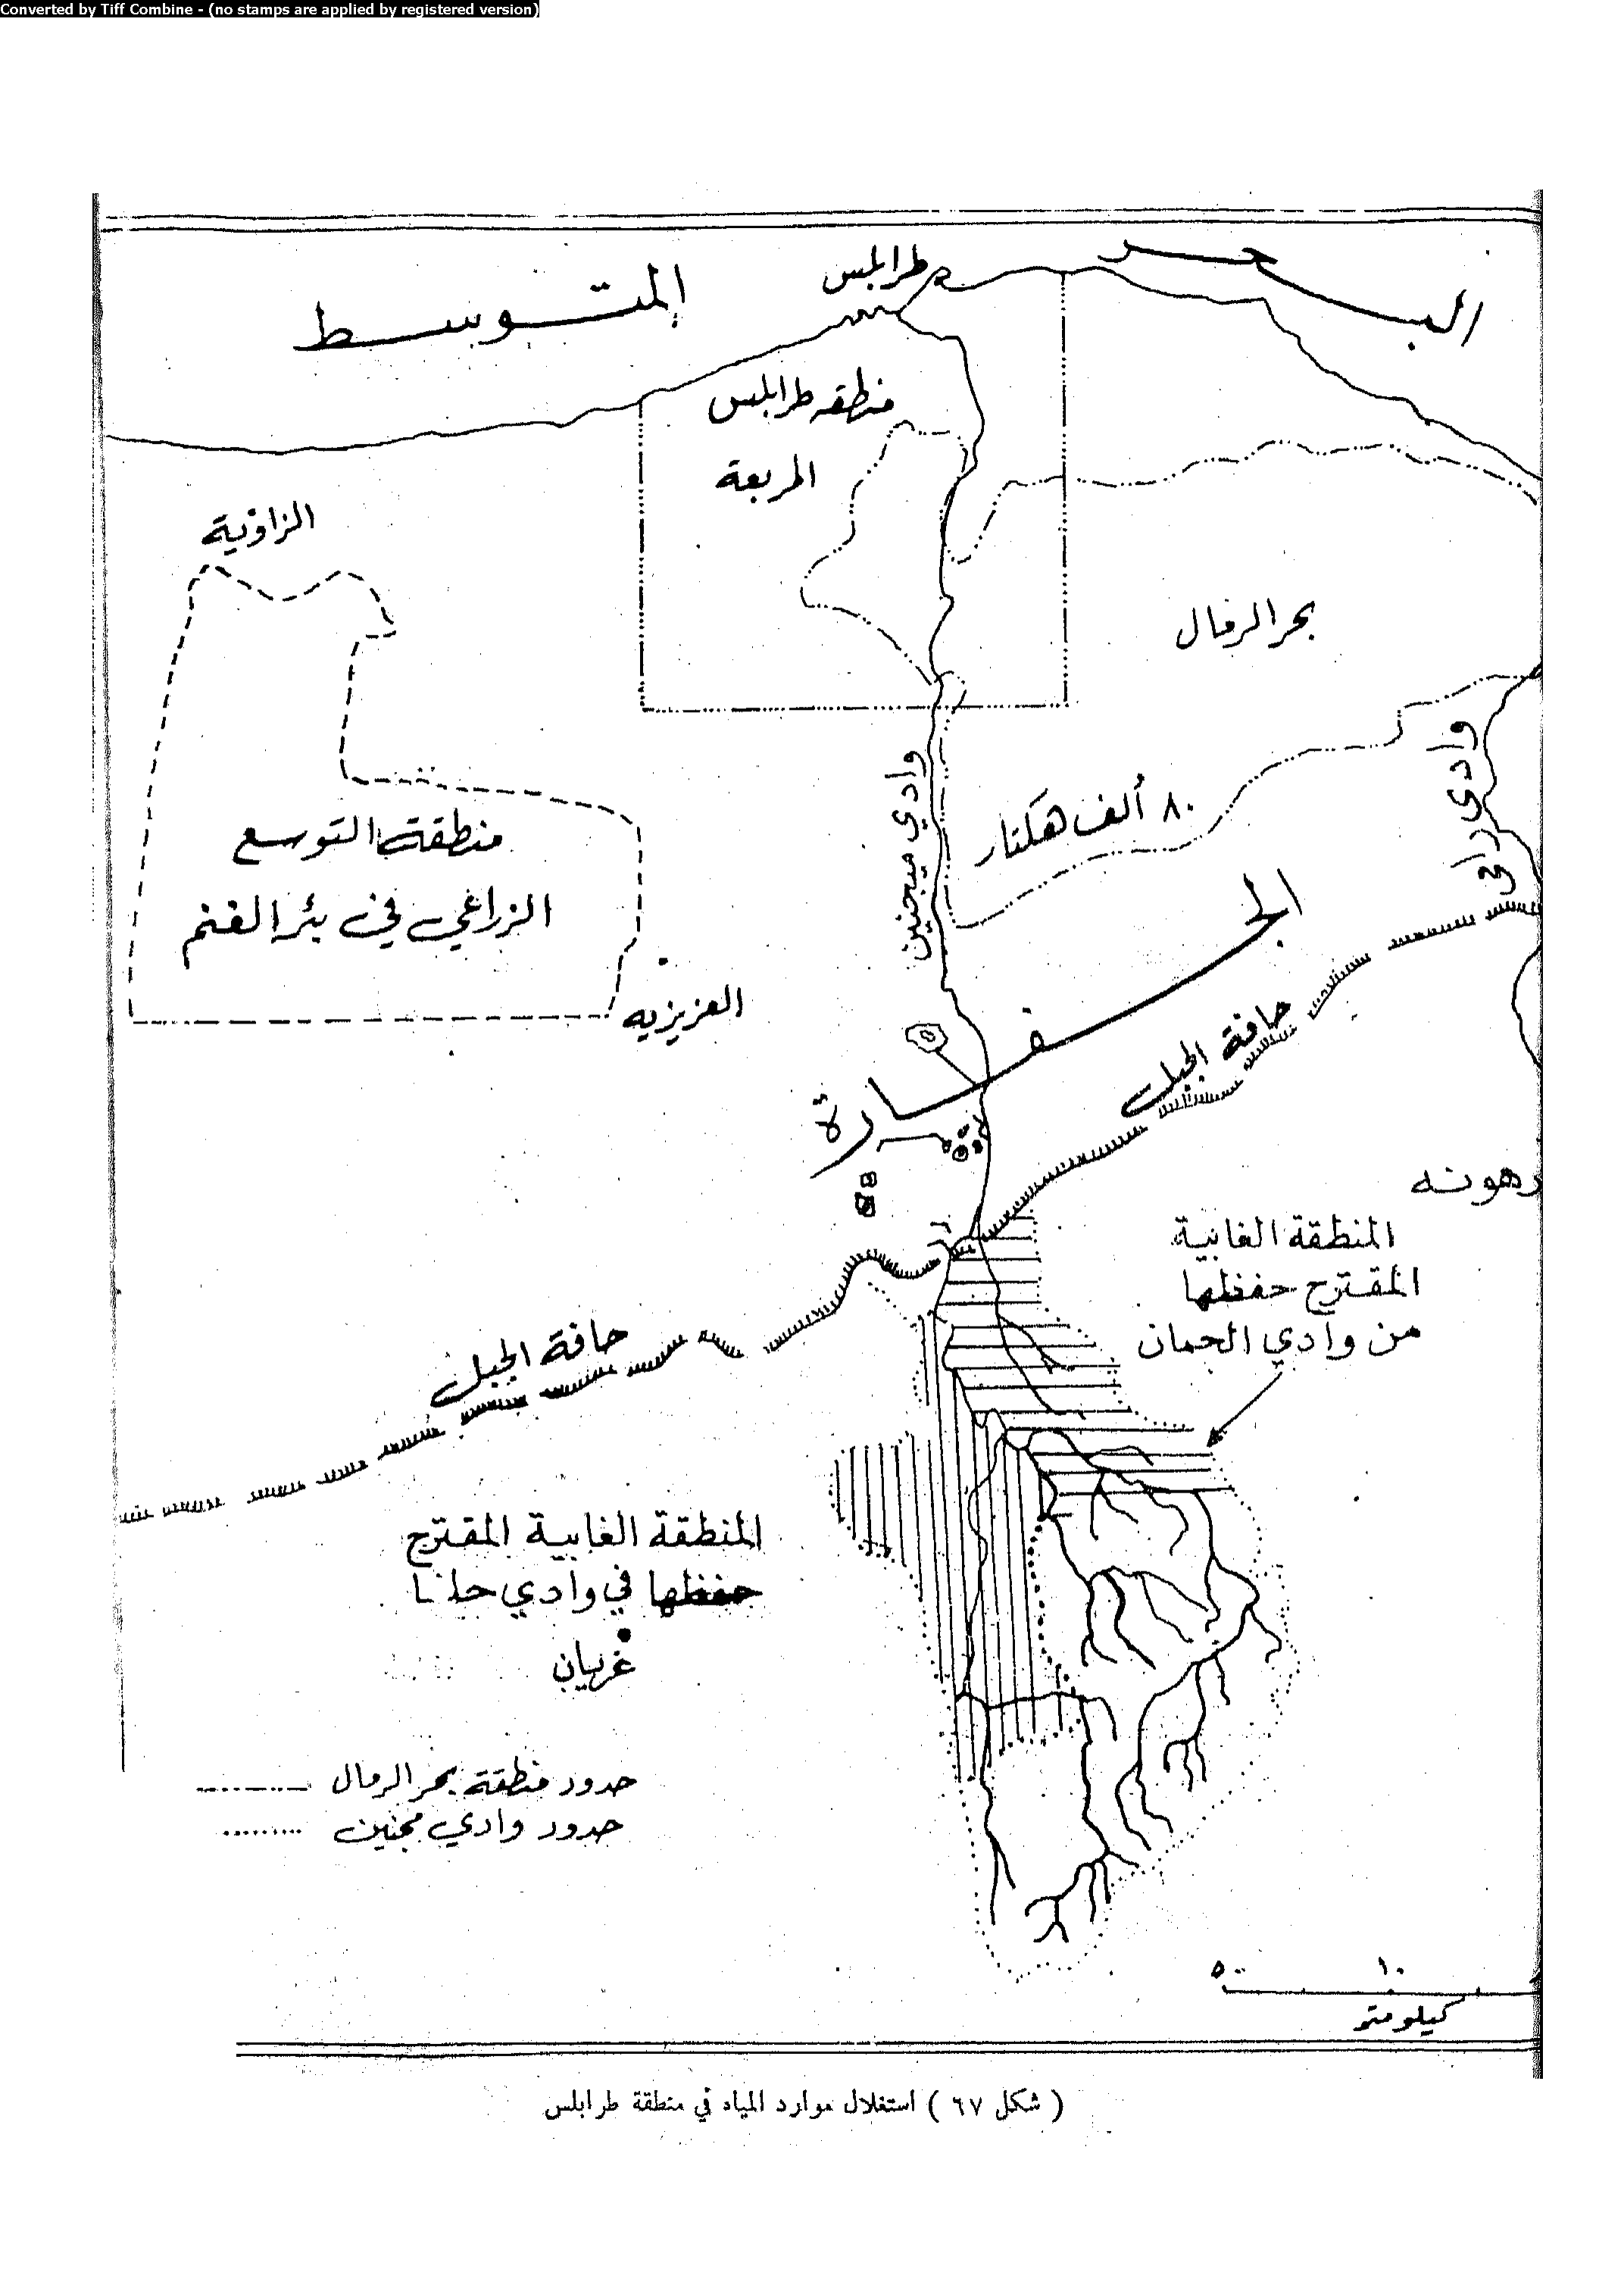 Converted by Tiff Combine - (no stamps are applied by registered version)
البحر
المتوسط
طرابلس
منطقه طرابلس
المربعة
الزاوية
بحر الرمال
وادي
وادي ميجنين
٨٠ ألف هكتار
منطقة التوسع
الزراعي في بئر الغنم
العزيزيه
الجفارة
حافة الجبل
رهونه
المنطقة الغابية
المقترح حفظها
من وادي الحمان
حافة الجبل
المنطقة الغابية المقترح
حفظها في وادي
غريان
حدود منطقة بحر الرمال
حدود وادي مجنين
٥ ١٠
كيلومتر
( شكل ٦٧ ) استغلال موارد المياه في منطقة طرابلس